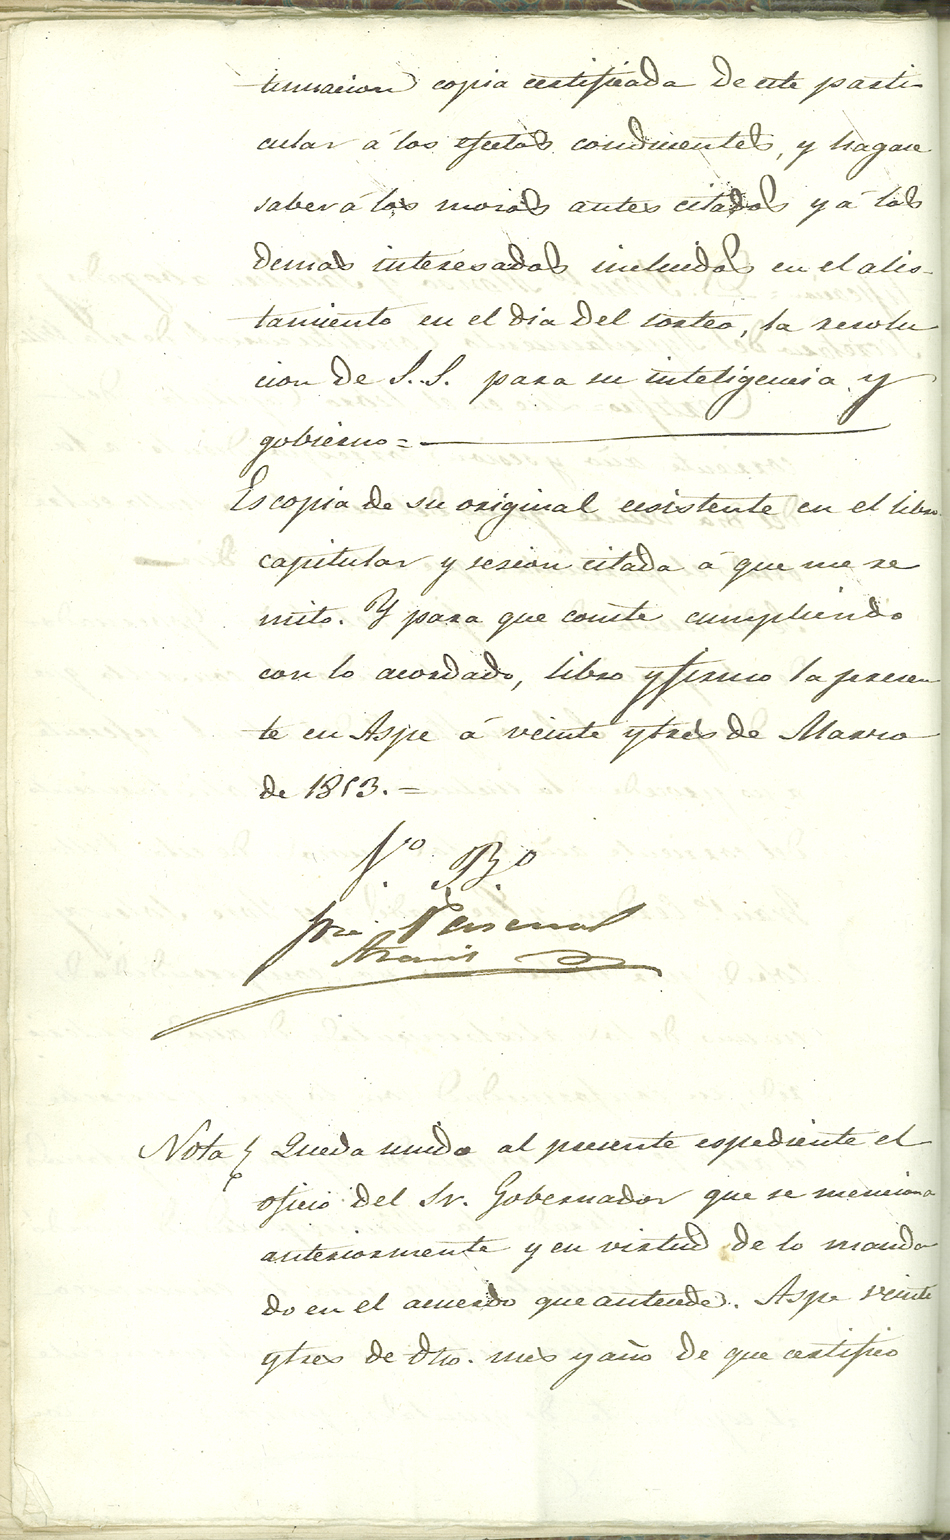 tinuacion copia certificada de este parti-
cular á los efectos condusentes, y hagase
saber á los mozos antes citados y á los
demas interesados incluidos en el alis-
tamiento en el dia del sorteo, la resolu
cion de S.S. para su inteligencia y
gobierno=
Es copia de su original ecsistente en el libro
capitular y sesion citada á que me re
mito. Y para que conste cumpliendo
con lo acordado, libro y firmo la presen
te en Aspe á veinte y tres de Marzo
de 1853.=
Vº. Bº.
Pascual
Nota Queda unido al presente espediente el
oficio del Sr. Gobernador que se menciona
anteriormente y en virtud de lo manda
do en el acuerdo que antecede. Aspe veinte
y tres de dho. mes y año de que certifico